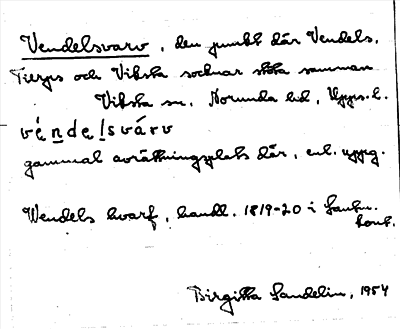 Vendelsvarv, den punkt där Vendels,
Tierps och Viksta socknar stöta samman
Viksta sn. Norunda hd, Upps. l.
véndelsvárv
gammal avrättningsplats där, enl. uppg.
Wendels hwarf, handl. 1819-20 i Lantm.
kont.
Birgitta Sandelin, 1954